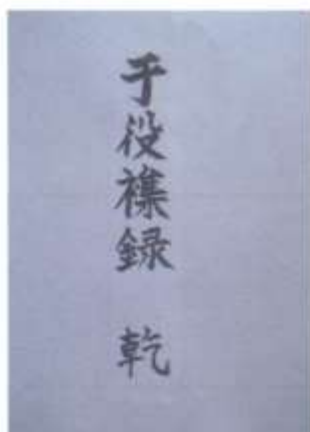 于役襍録 乾